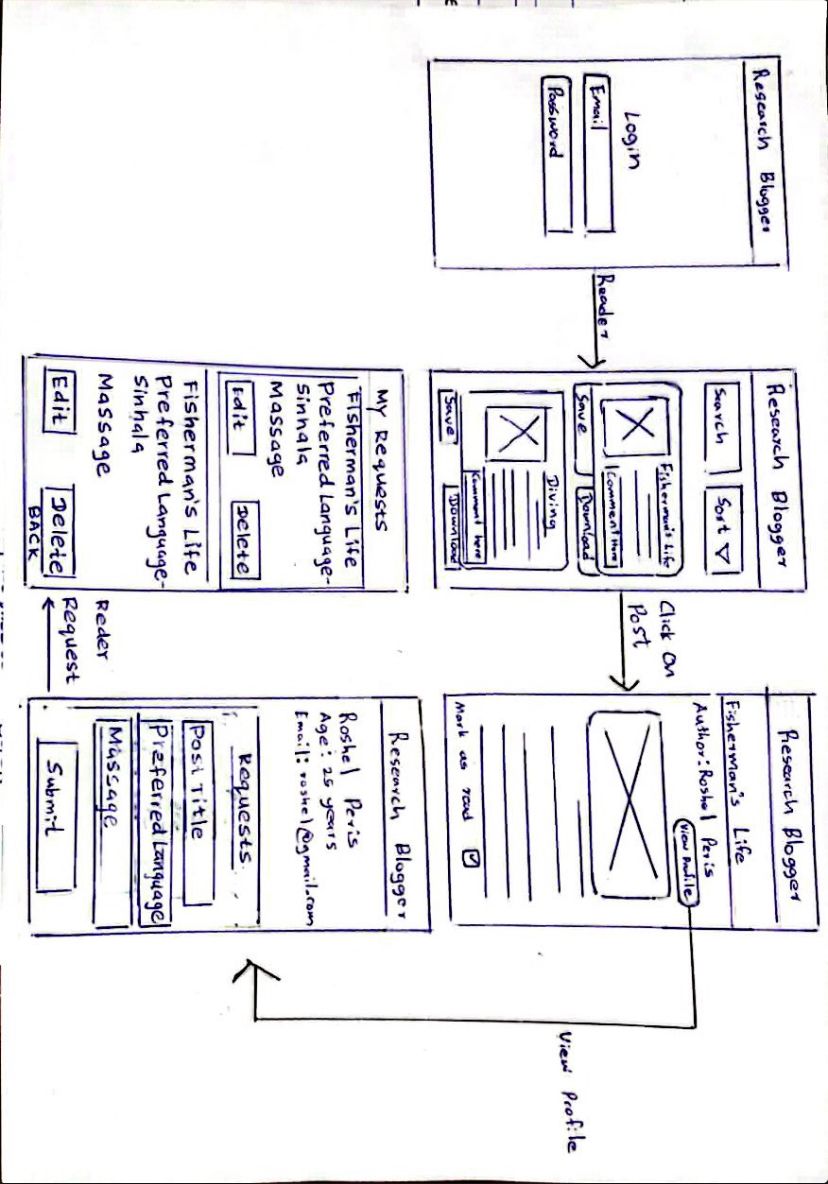 Research Blogger
Login
Email
Password
Reader
Research Blogger
Search
Sort ▽
Fisherman's Life
Comment Here
Save
Download
Diving
Komment here
Save
Download
Click On
Post
Research Blogger
Fisherman's Life
Author: Roshel Peris
View Profile
Mark as read
View Profile
Research Blogger
Roshel Peris
Age: 25 years
Email: roshel@gmail.com
Requests
Post Title
Preferred Language
Massage
Submit
Reder
Request
My Requests
Fisherman's Life
Preferred Language-
Sinhala
Massage
Edit
Delete
Fisherman's Life
Preferred Language-
Sinhala
Massage
Edit
Delete
BACK